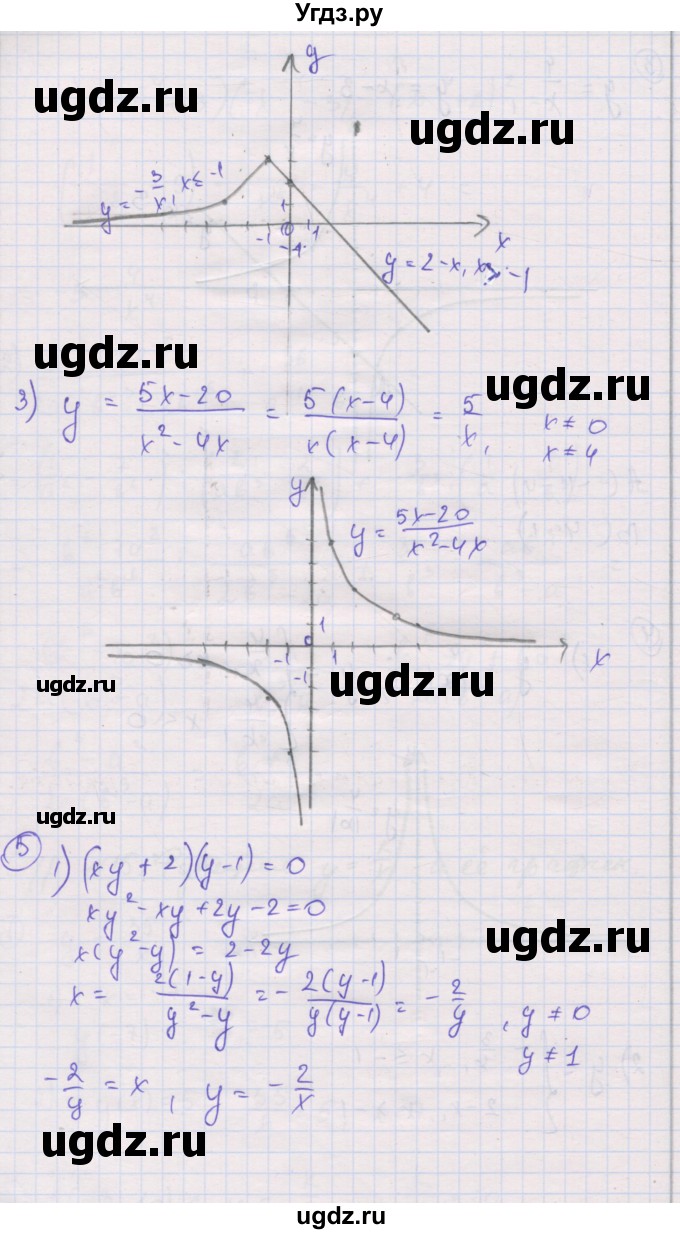 Угдз.ру
ugdz.ru
ugdz.ru
y
y = -3/x, x ≤ -1
1
-1 0 1
-1
x
y = 2-x, x > -1
ugdz.ru
ugdz.ru
3) y = (5x-20)/(x²-4x) = 5(x-4)/(x(x-4)) = 5/x, x≠0
x≠4
y
y = (5x-20)/(x²-4x)
1
0
-1 1
-1
x
ugdz.ru
ugdz.ru
ugdz.ru
5 1) (xy+2)(y-1)=0
xy²-xy+2y-2=0
x(y²-y) = 2-2y
ugdz.ru
x = 2(1-y)/(y²-y) = -2(y-1)/(y(y-1)) = -2/y, y≠0
y≠1
-2/y = x, y = -2/x
ugdz.ru
ugdz.ru